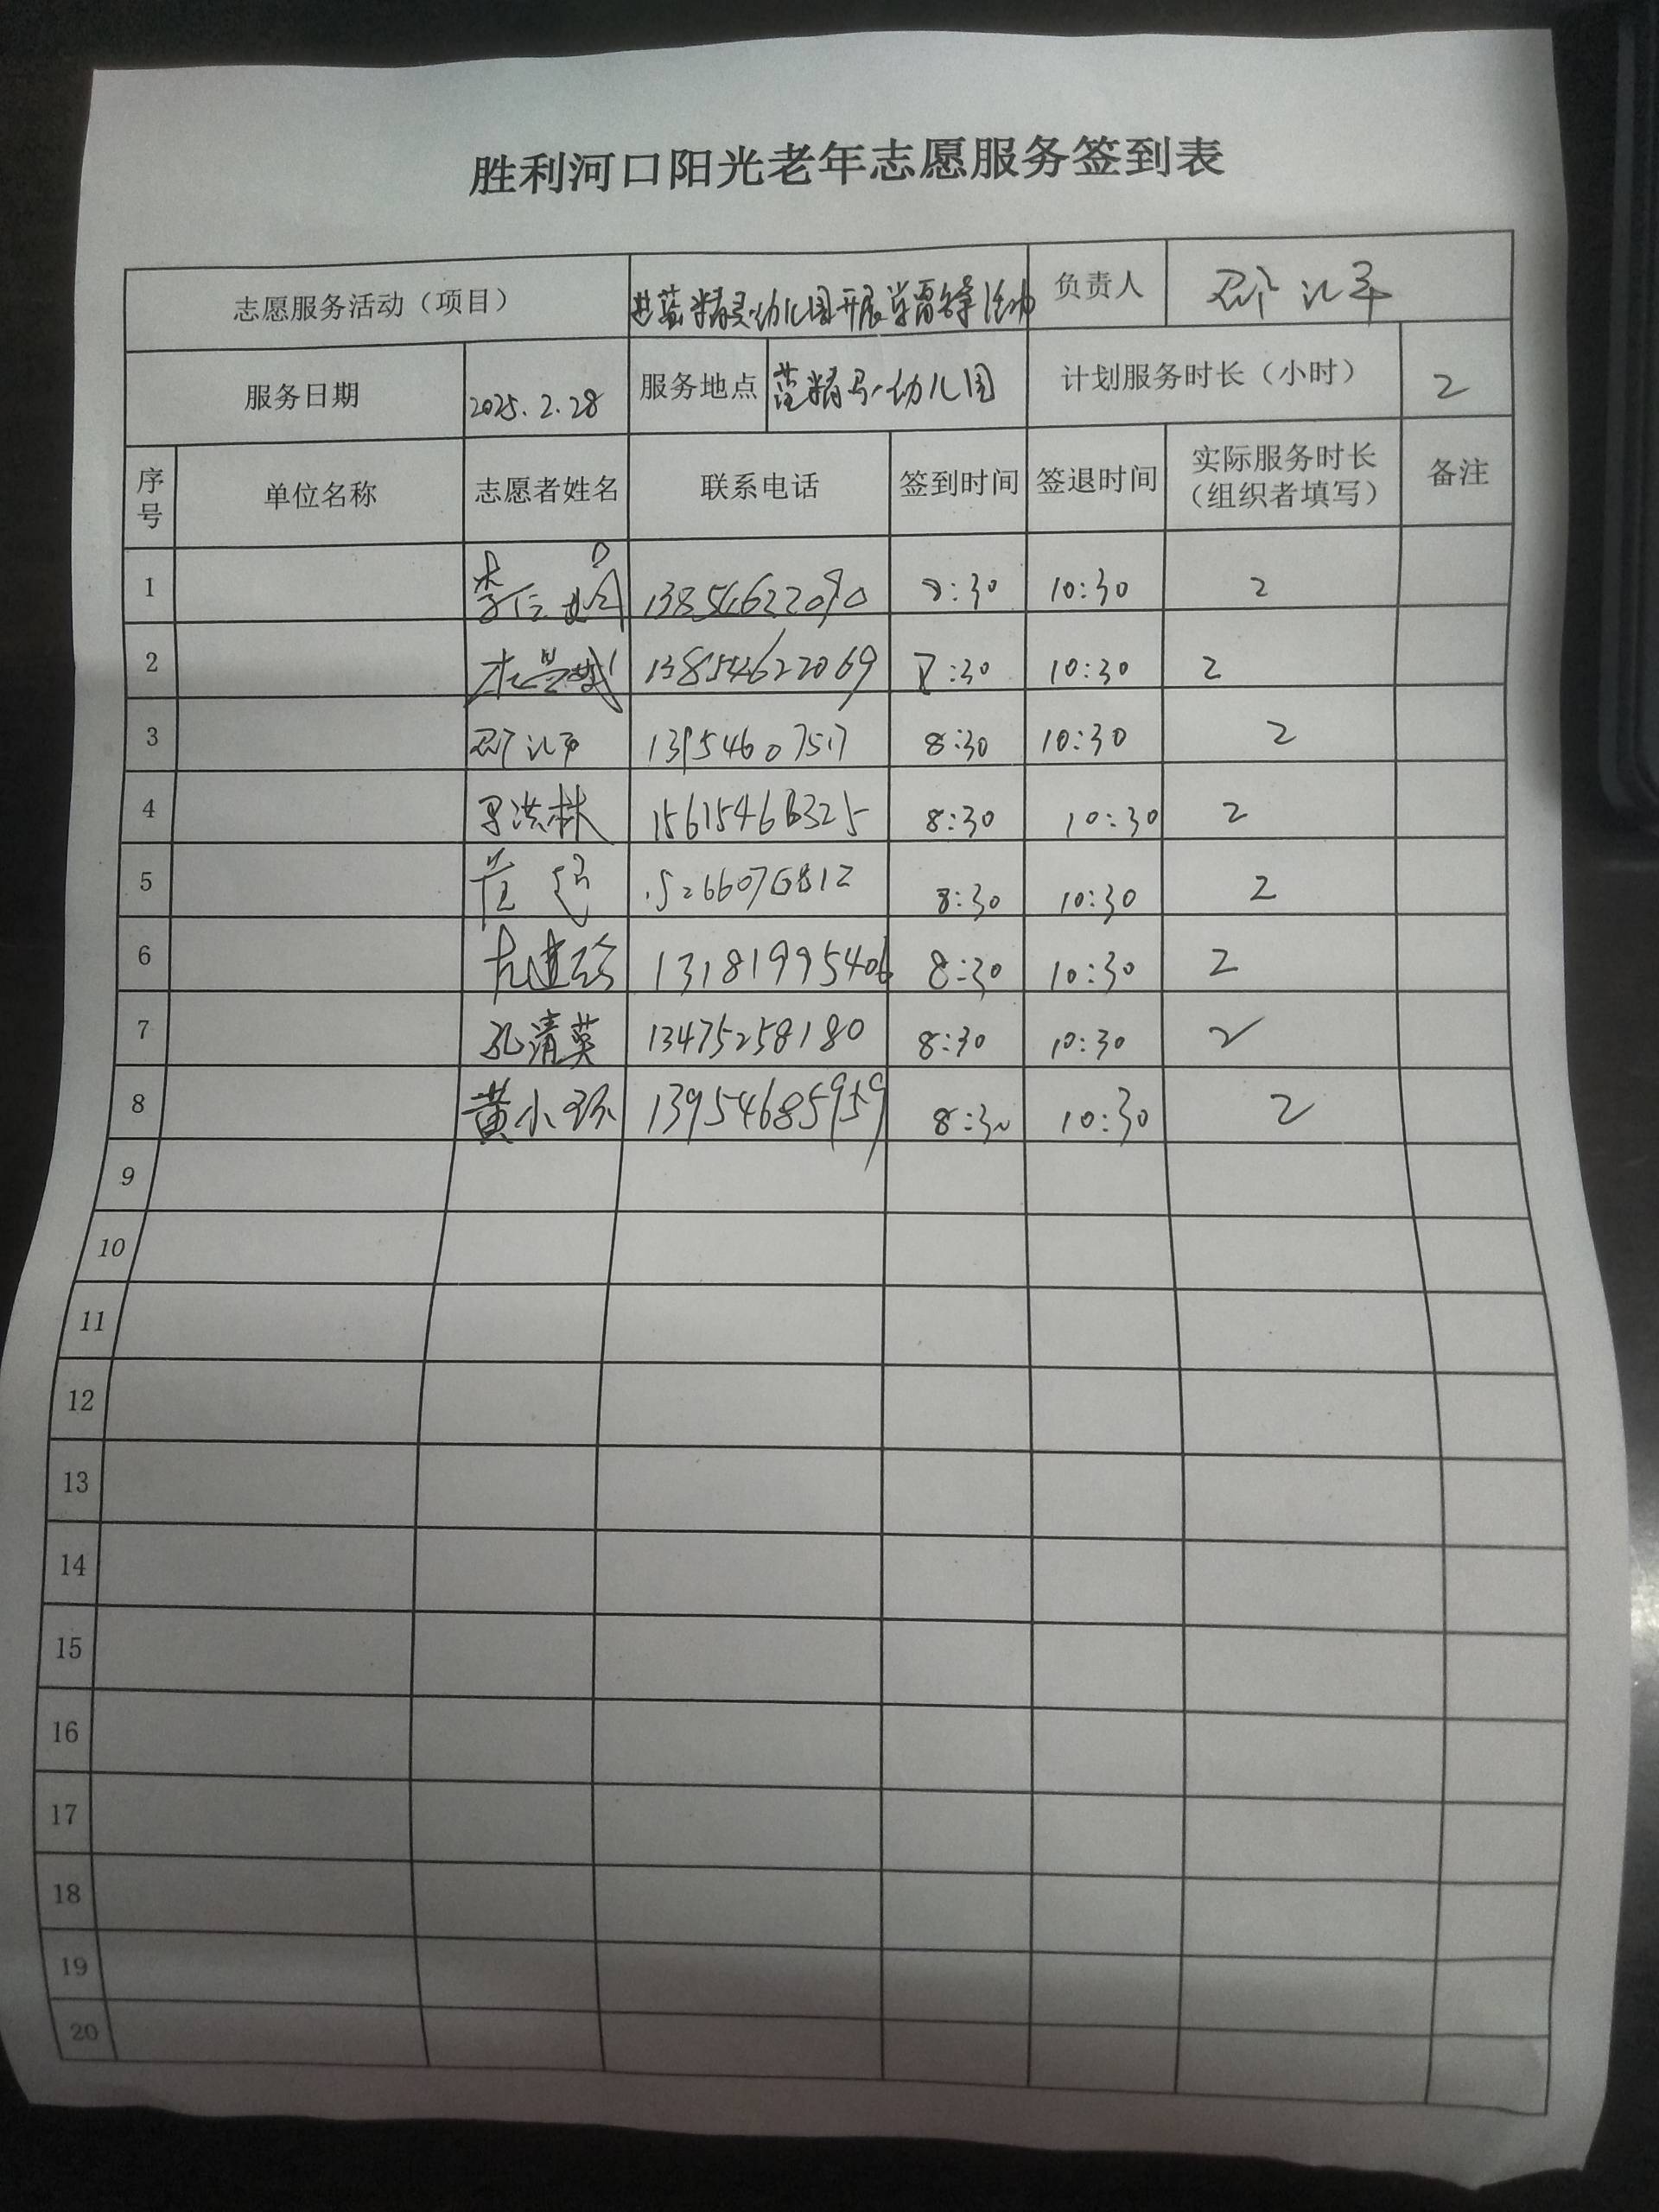 胜利河口阳光老年志愿服务签到表
志愿服务活动（项目） 进蓝精灵幼儿园开展学雷锋活动 负责人
服务日期 2025.2.28 服务地点 蓝精灵幼儿园 计划服务时长（小时） 2
序号 单位名称 志愿者姓名 联系电话 签到时间 签退时间 实际服务时长（组织者填写） 备注
1 8:30 10:30 2
2 13854622069 8:30 10:30 2
3 13954607517 8:30 10:30 2
4 洪林 15615468325 8:30 10:30 2
5 8:30 10:30 2
6 13181995406 8:30 10:30 2
7 孔清英 13475258180 8:30 10:30 2
8 黄小环 13954685959 8:30 10:30 2
9
10
11
12
13
14
15
16
17
18
19
20